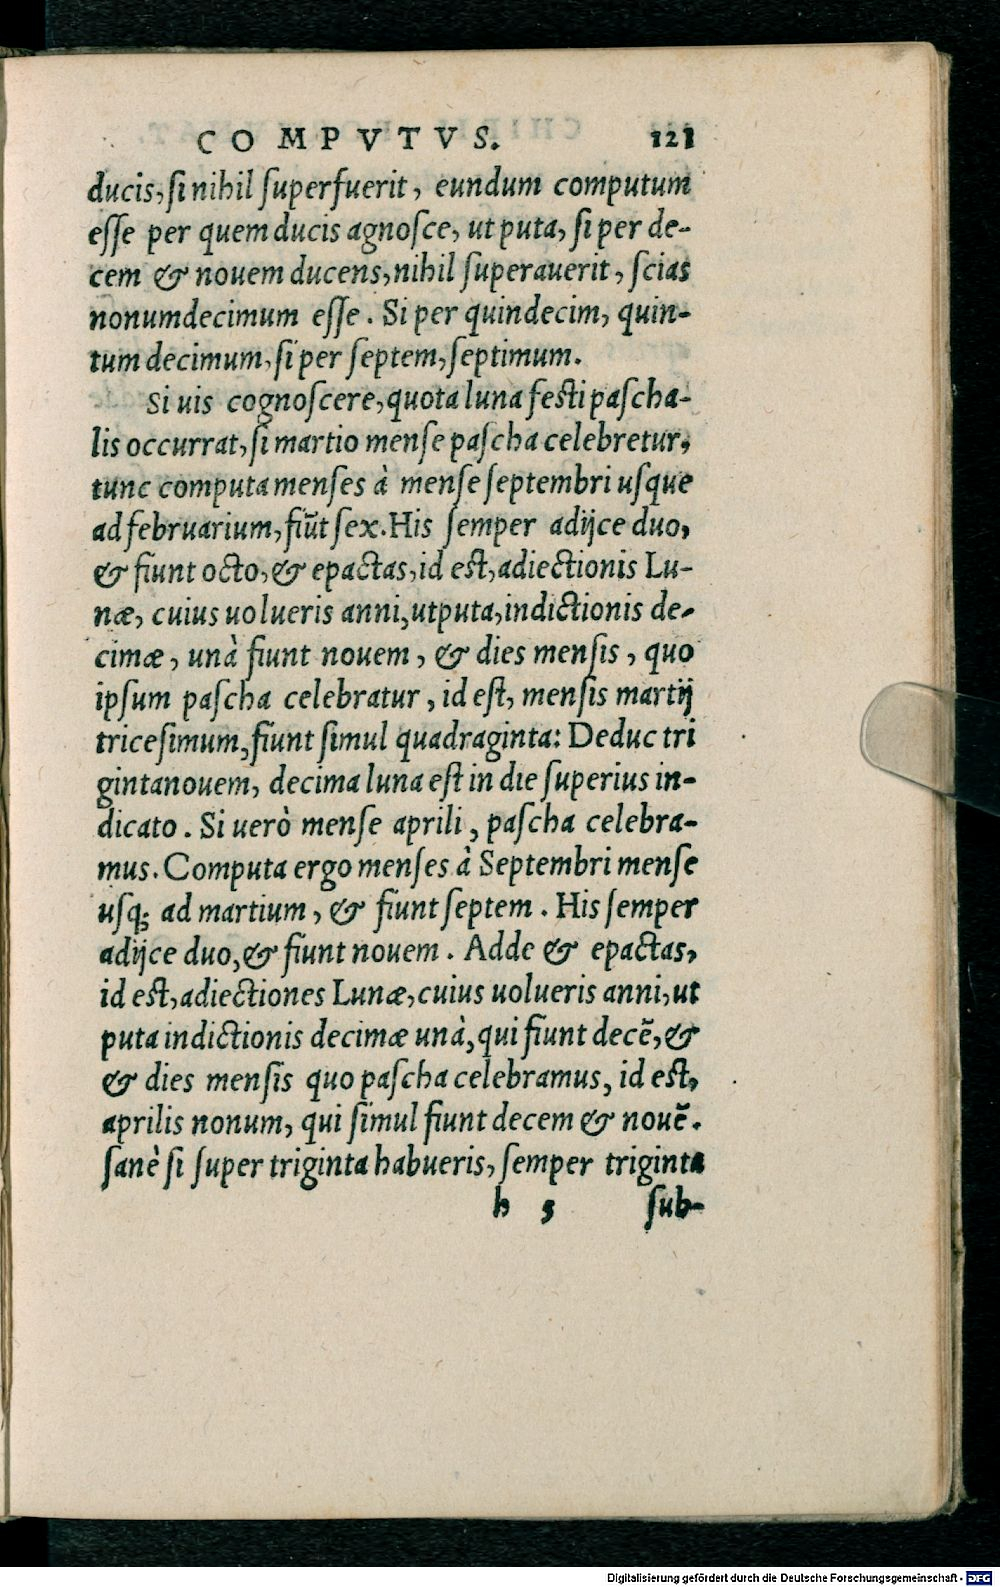 COMPVTVS. 121
ducis, ſi nihil ſuperfuerit, eundum computum
eſſe per quem ducis agnoſce, ut puta, ſi per de-
cem & nouem ducens, nihil ſuperauerit, ſcias
nonumdecimum eſſe. Si per quindecim, quin-
tum decimum, ſi per ſeptem, ſeptimum.
Si uis cognoſcere, quota luna feſti paſcha-
lis occurrat, ſi martio menſe paſcha celebretur,
tunc computa menſes à menſe ſeptembri uſque
ad februarium, fiūt ſex. His ſemper adijce duo,
& fiunt octo, & epactas, id eſt, adiectionis Lu-
næ, cuius uolueris anni, utputa, indictionis de-
cimæ, unà fiunt nouem, & dies menſis, quo
ipſum paſcha celebratur, id eſt, menſis martij
triceſimum, fiunt ſimul quadraginta: Deduc tri
gintanouem, decima luna eſt in die ſuperius in-
dicato. Si uerò menſe aprili, paſcha celebra-
mus. Computa ergo menſes à Septembri menſe
uſq; ad martium, & fiunt ſeptem. His ſemper
adijce duo, & fiunt nouem. Adde & epactas,
id eſt, adiectiones Lunæ, cuius uolueris anni, ut
puta indictionis decimæ unà, qui fiunt decē, &
& dies menſis quo paſcha celebramus, id eſt,
aprilis nonum, qui ſimul fiunt decem & nouē.
ſanè ſi ſuper triginta habueris, ſemper triginta
h 5 ſub-
Digitalisierung gefördert durch die Deutsche Forschungsgemeinschaft - DFG